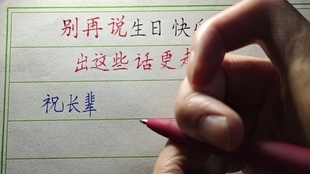 别再说生日快
出这些话更
祝长辈